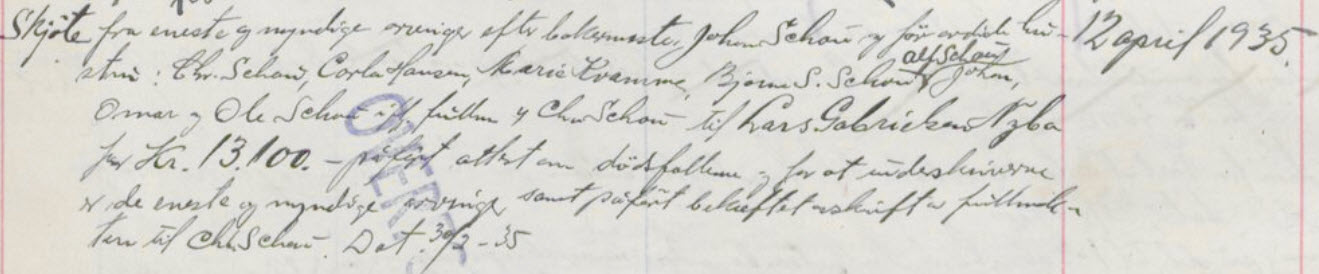 Skjöte fra eneste og myndige arvinger efter bakermester Johan Schau og för avdöde hu- 12 april 1935.
stru: Chr. Schau, Carla Hansen, Marie Kvamme, Bjarne S. Schau, Alf Schau, Johan,
Omar og Ole Schau ifl. fullm. og Chr. Schau til Lars Gabrielsen Nybø
for Kr. 13.100.- påfört attest om dödsfallene og for at underskriverne
er de eneste og myndige arvinger samt påfört bekreftet avskrift av fullmak-
ten til Chr. Schau. Dat. 30/3-35